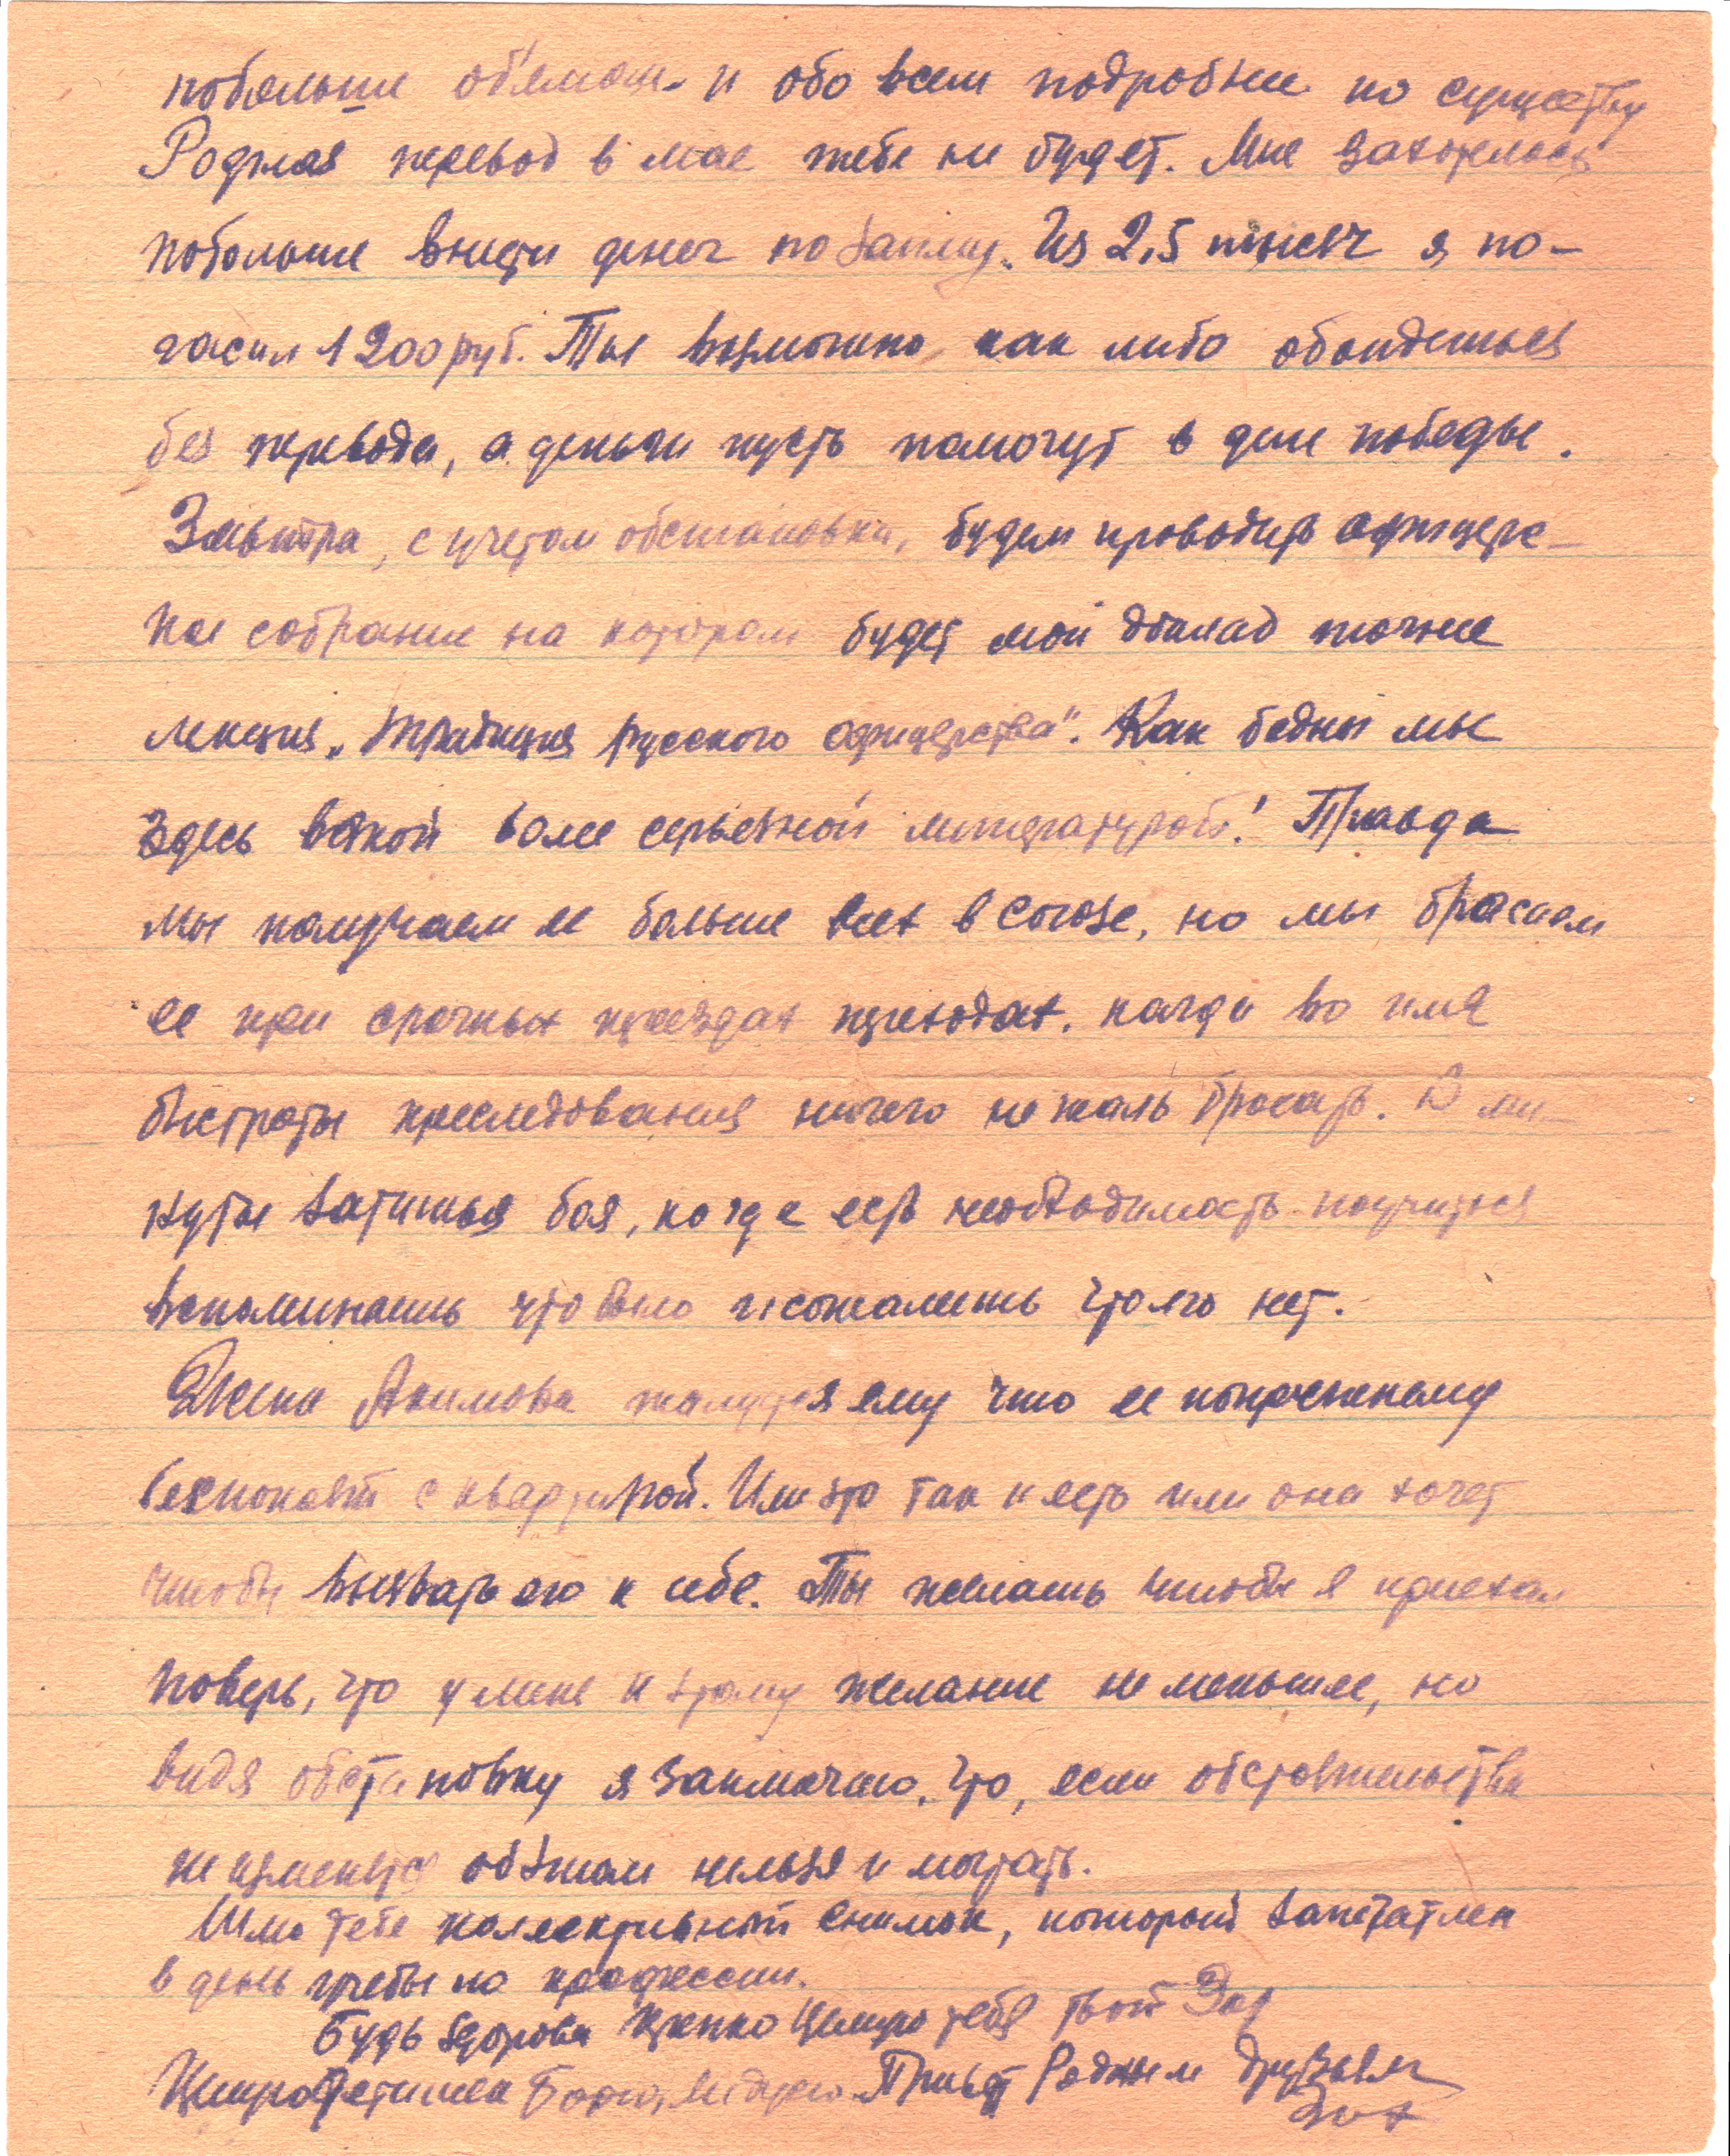 побольше об'емом и обо всем подробнее по существу
Родная перевод в мае тебе не будет. Мне захотелось
побольше внести денег по займу. Из 2,5 тысеч я по-
гасил 1200 руб. Ты возможно как либо обойдешься
без перевода, а деньги пусть помогут в деле победы.
Завтра, с учетом обстановки, будем проводить офицерс-
кое собрание на котором будет мой доклад точнее
лекция „Традиция русского офицерства". Как бедны мы
здесь всякой более серьезной литературой! Правда
мы получаем ее больше всех в союзе, но мы бросаем
ее при срочных приездах переходах. когда во имя
быстроты преследования ничего не жаль бросать. В ми-
нуты затишья боя, когда есть необходимость поучиться
вспоминаешь что было и сожалеешь что его нет.
Жена Акимова жалуется ему что ее попрежнему
беспокоят с квартирой. Или это так и есть или она хочет
чтобы вызвать его к себе. Ты желаешь чтобы я приехал
поверь, что у меня к этому желание не меньшее, но
видя обстановку я заключаю, что, если обстоятельства
не изменятся об этом нельзя и мечтать.
Шлю тебе коллективный снимок, который запечатлен
в день учебы по профессии.
Будь здорова Крепко Целую тебя твой
Целую Детишек Борю, Привет Родным друзьям